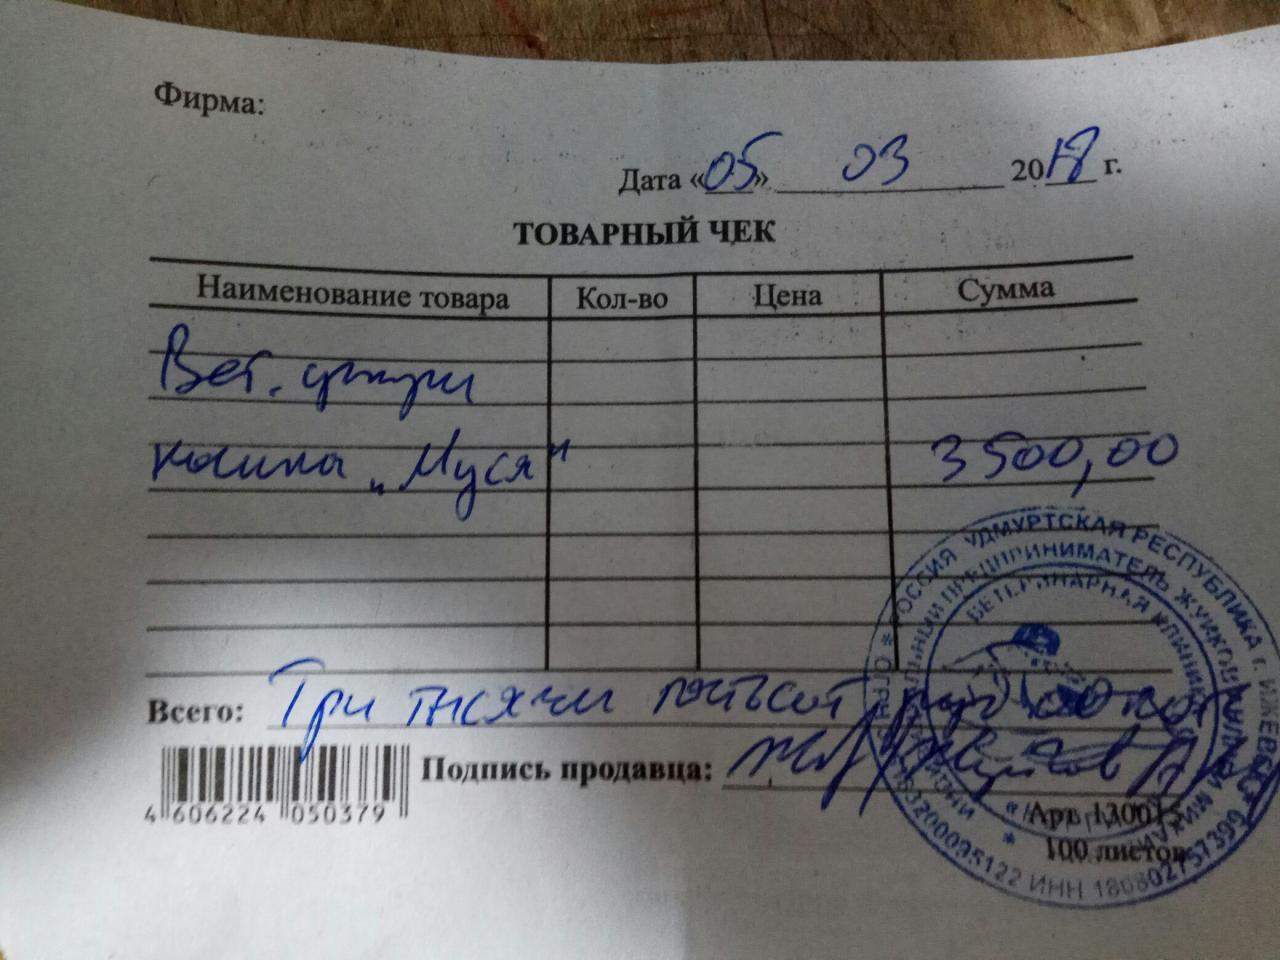 Фирма:
Дата «05» 03 2018 г.
ТОВАРНЫЙ ЧЕК
Наименование товара Кол-во Цена Сумма
Вет. услуги
кошка „Муся" 3500,00
Всего: Три тысячи пятьсот руб 00 коп
4 606224 050379
Подпись продавца:
Арт. 130015
100 листов
* РОССИЯ УДМУРТСКАЯ РЕСПУБЛИКА г. ИЖЕВСК
ПРЕДПРИНИМАТЕЛЬ
ВЕТЕРИНАРНАЯ КЛИНИКА
ИНН